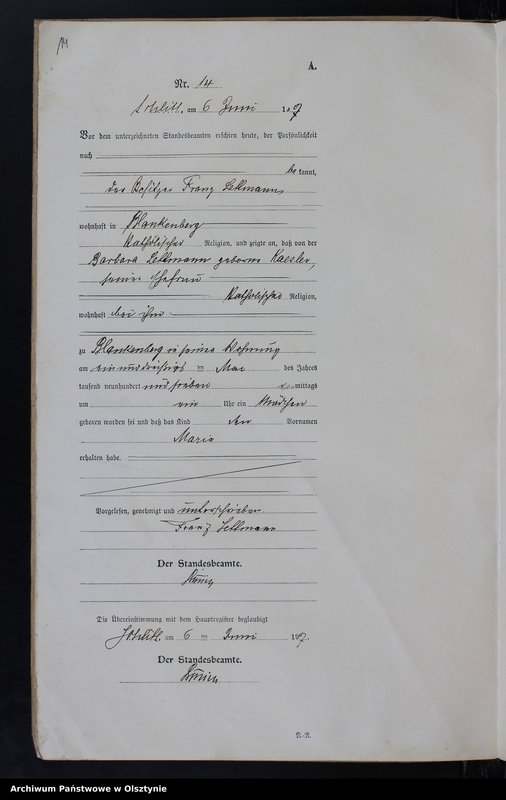 14
A.
Nr. 14
am 6 Juni 1907
Vor dem unterzeichneten Standesbeamten erschien heute, der Persönlichkeit
nach
be kannt,
der Besitzer Franz Lettmann,
wohnhaft in Blankenberg
katholischer Religion, und zeigte an, daß von der
Barbara Lettmann geborene Kaesler,
seiner Ehefrau
katholischer Religion,
wohnhaft bei ihm
zu Blankenberg in seiner Wohnung
am einunddreißigs ten Mai des Jahres
tausend neunhundert und sieben mittags
um ein Uhr ein Mädchen
geboren worden sei und daß das Kind den Vornamen
Maria
erhalten habe.
Vorgelesen, genehmigt und unterschrieben
Franz Lettmann
Der Standesbeamte.
Die Übereinstimmung mit dem Hauptregister beglaubigt
am 6 ten Juni 1907.
Der Standesbeamte.
Archiwum Państwowe w Olsztynie